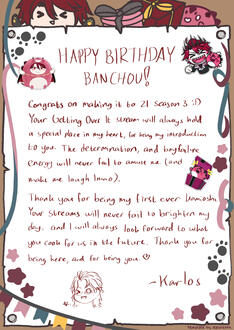 HAPPY BIRTHDAY
BANCHOU!
Congrats on making it to 21 season 3 :D
Your Getting Over It stream will always hold
a special place in my heart, for being my introduction
to you. The determination, and
energy will never fail to amuse me (and
make me laugh lmao).
Thank you for being my first ever
Your streams will never fail to brighten my
day, and I will always look forward to what
you cook for us in the future. Thank you for
being here, and for being you.
-Karlos